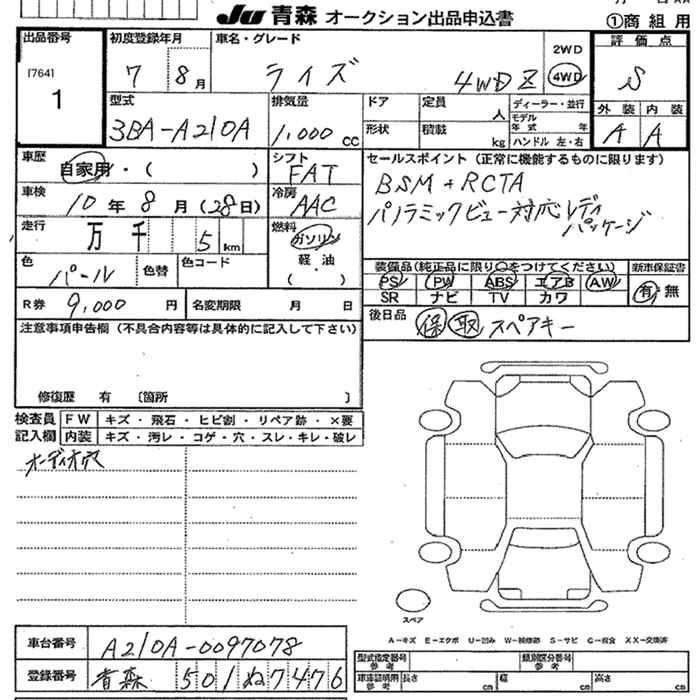 JU 青森 オークション出品申込書
①商組用
出品番号
[764]
1
初度登録年月
7 8月
車名・グレード
ライズ 4WD Z
2WD
4WD
評価点
S
外装 内装
A A
型式
3BA-A210A
排気量
1,000 cc
ドア
形状
定員 人
積載 kg
ディーラー・並行
モデル年式 年式
ハンドル 左・右
車歴
自家用・( )
シフト
FAT
車検
10年8月(28日)
冷房
AAC
走行
万 千 5 km
燃料
ガソリン
軽・油
( )
色
パール
色替
色コード
R券 9,000 円
名変期限 月 日
セールスポイント(正常に機能するものに限ります)
BSM+RCTA
パノラミックビュー対応レディ
パッケージ
装備品(純正品に限り○をつけてください)
新車保証書
PS PW ABS エアB AW
SR ナビ TV カワ
有・無
後日品
保 取 スペアキー
注意事項申告欄(不具合内容等は具体的に記入して下さい)
修復歴 有 〔箇所 〕
検査員
記入欄
FW キズ・飛石・ヒビ割・リペア跡・×要
内装 キズ・汚レ・コゲ・穴・スレ・キレ・破レ
オーディオ穴
スペア
A-キズ E-エクボ U-凹み W-補修跡 S-サビ C-腐食 XX-交換済
車台番号 A210A-0097078
登録番号 青森 501 ぬ 7476
型式指定番号
参考
類別区分番号
参考
車庫証明用
参考
長さ cm
幅 cm
高さ cm